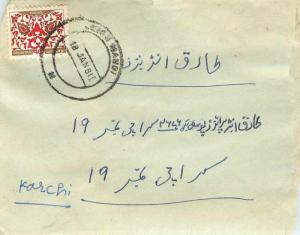 18 JAN 81
طارق انٹرپرائزز
طارق انٹرپرائزز
کراچی نمبر 19
کراچی نمبر 19
Karchi